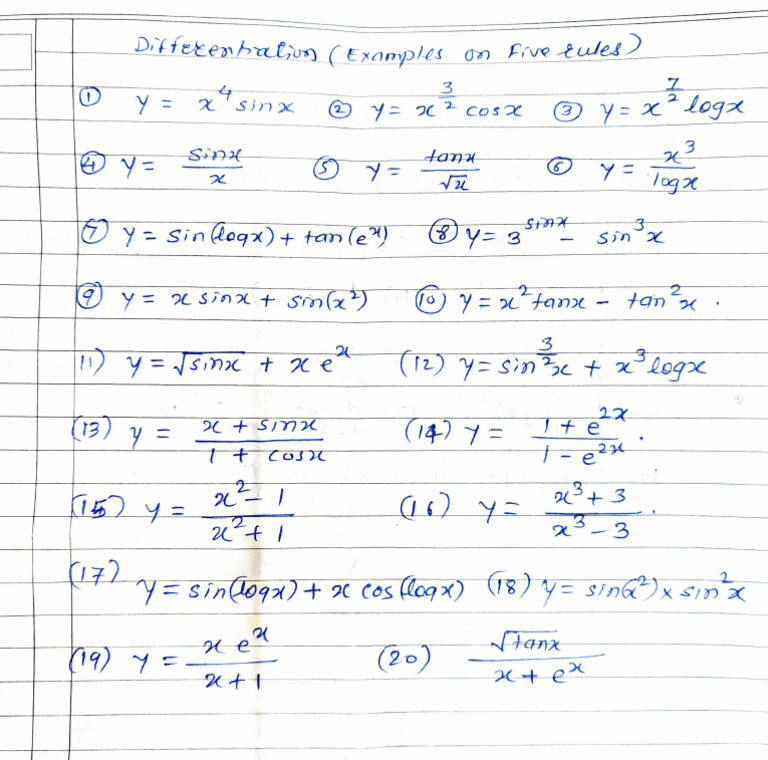 Differentiation (Examples on Five rules)
① y = x⁴ sinx ② y = x^(3/2) cosx ③ y = x^(7/2) logx
④ y = sinx/x ⑤ y = tanx/√x ⑥ y = x³/logx
⑦ y = sin(logx) + tan(eˣ) ⑧ y = 3^(sinx) − sin³x
⑨ y = x sinx + sin(x²) ⑩ y = x² tanx − tan²x .
11) y = √sinx + x eˣ (12) y = sin^(3/2)x + x³ logx
(13) y = (x + sinx)/(1 + cosx) (14) y = (1 + e^(2x))/(1 − e^(2x)) .
(15) y = (x² − 1)/(x² + 1) (16) y = (x³ + 3)/(x³ − 3) .
(17) y = sin(logx) + x cos(logx) (18) y = sin(x²) × sin²x
(19) y = x eˣ/(x + 1) (20) √tanx/(x + eˣ)